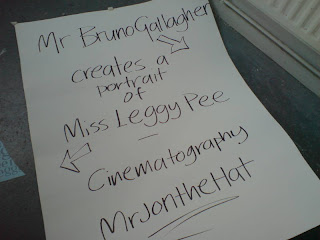 Mr Bruno Gallagher
creates a
portrait
of
Miss Leggy Pee
Cinematography
MrJontheHat